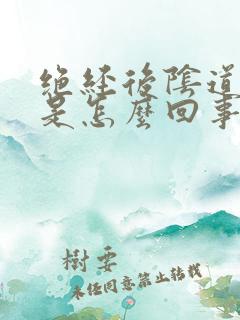 絕經後陰道
是怎麼回事
樹要
未經同意禁止轉載